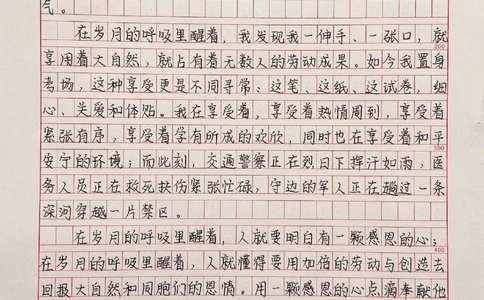 气。
在岁月的呼吸里醒着，我发现我一伸手、一张口，就
200
享用着大自然，就占有着无数人的劳动成果。如今我置身
考场，这种享受更是不同寻常：这笔、这纸、这试卷，细
心、关爱和体贴。我在享受着，享受着热情周到，享受着
紧张有序，享受着学有所成的欢欣，同时也在享受着和平
300
安宁的环境；而此刻，交通警察正在烈日下挥汗如雨，医
务人员正在救死扶伤紧张忙碌，守边的军人正在趟过一条
深河穿越一片禁区。
在岁月的呼吸里醒着，人就要明白有一颗感恩的心；
400
在岁月的呼吸里醒着，人就懂得要用加倍的劳动与创造去
回报大自然和同胞们的恩情。用一颗感恩的心点滴奉献他